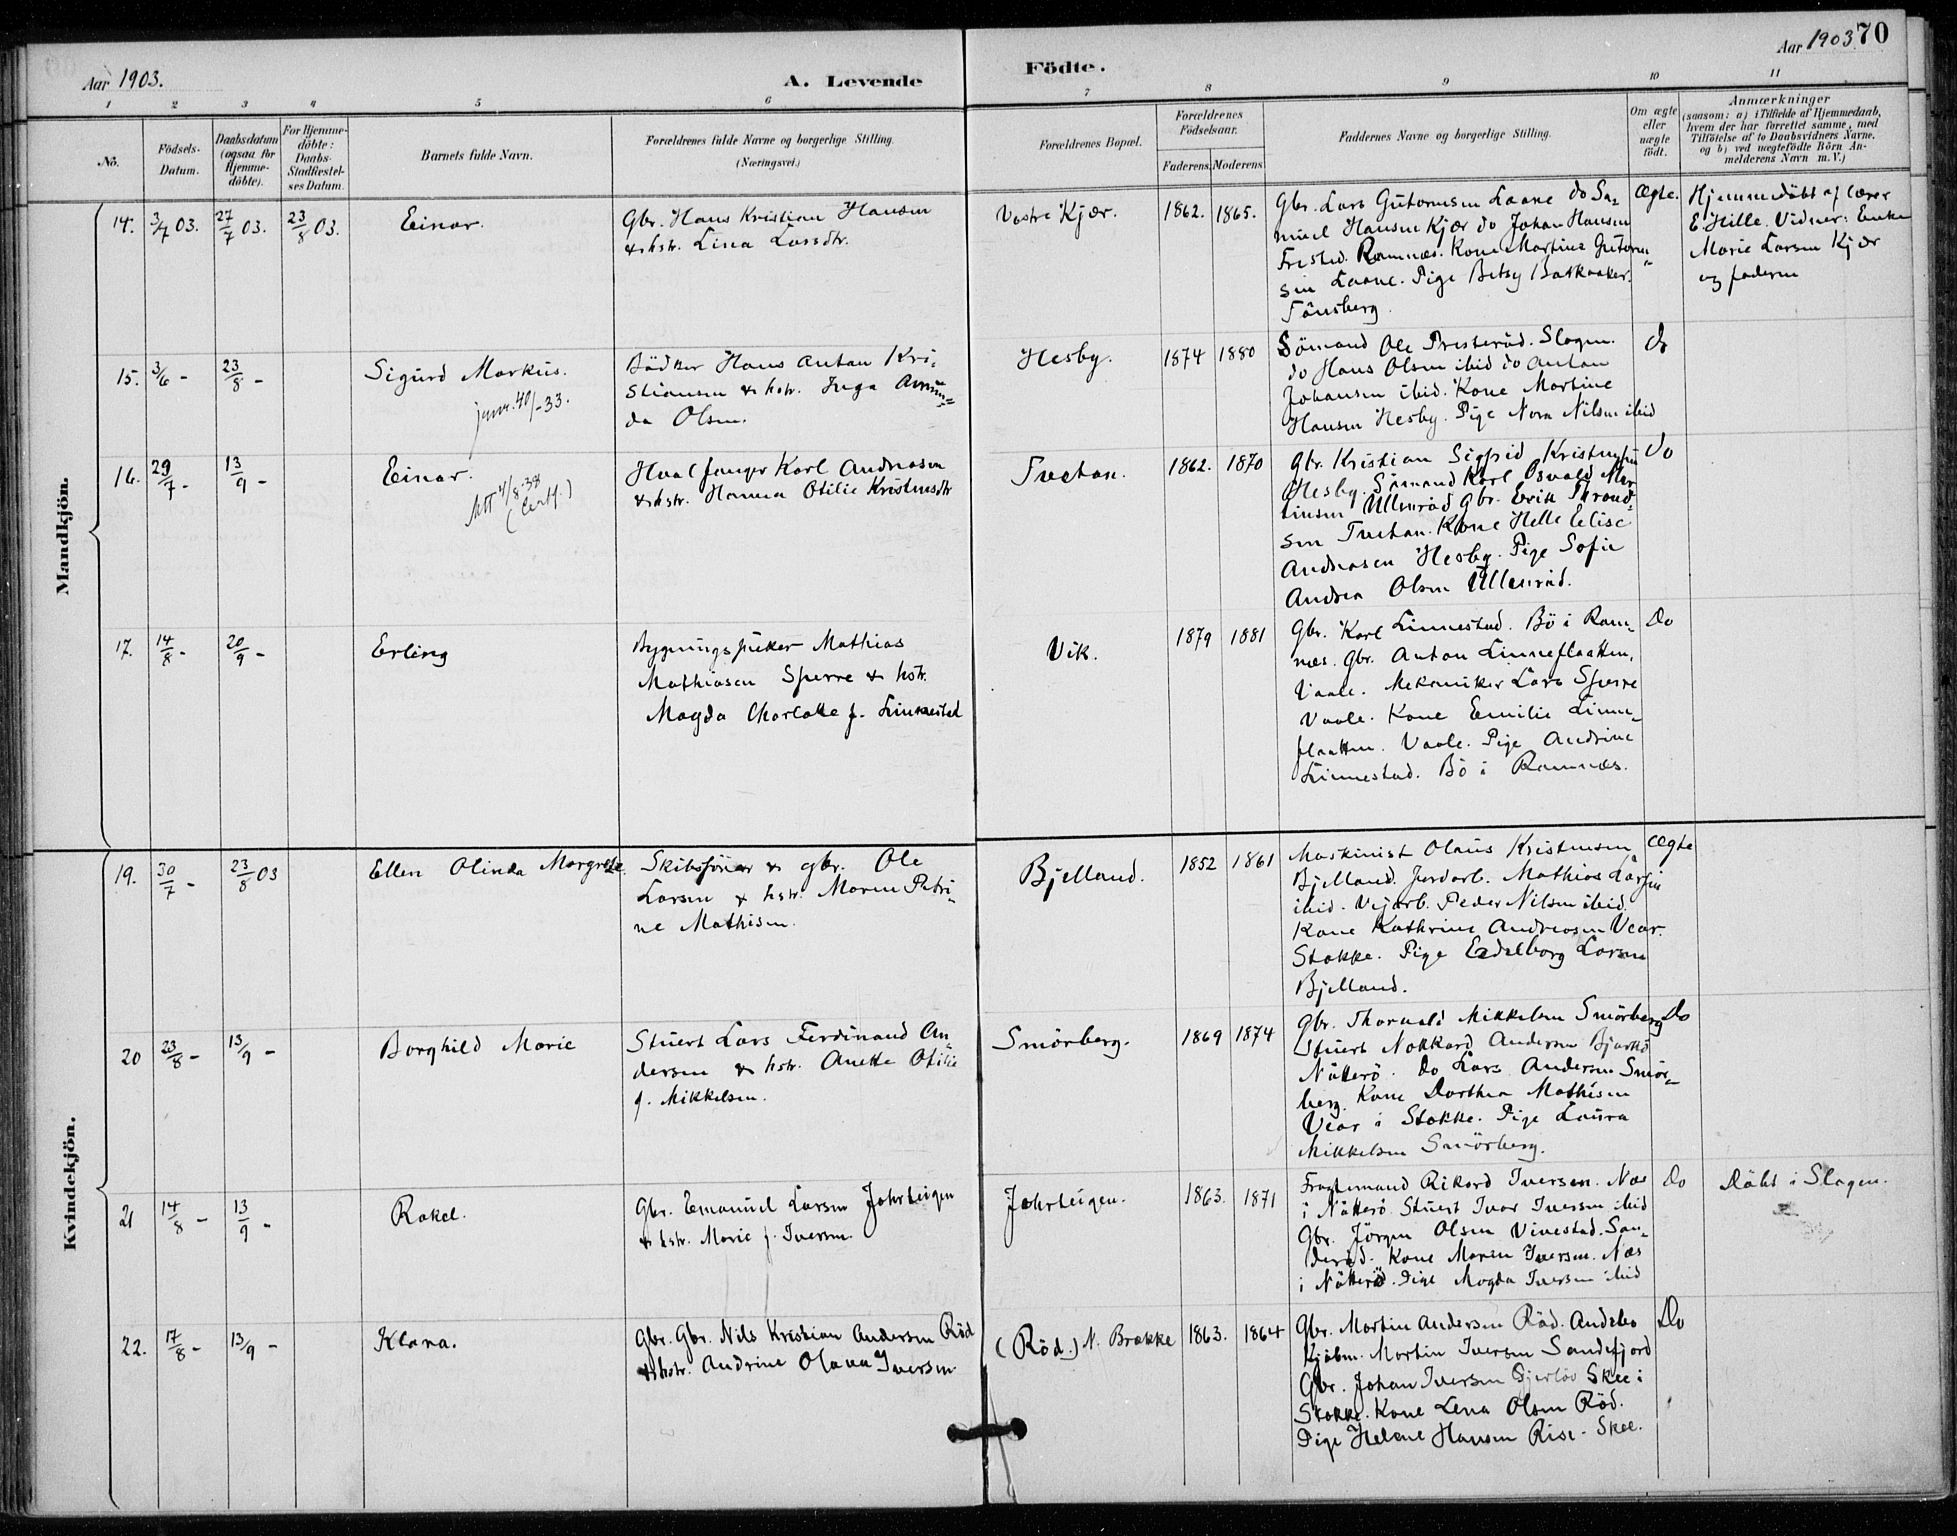 Aar 1903.
A. Levende
Födte.
Aar 1903. 70
1 2 3 4 5 6 7 8 9 10 11
No.
Födsels-Datum.
Daabsdatum (ogsaa for Hjemme-döbte).
For Hjemme-döbte: Daabs-Stadfæstel-ses Datum.
Barnets fulde Navn.
Forældrenes fulde Navne og borgerlige Stilling.
(Næringsvei.)
Forældrenes Bopæl.
Forældrenes Födselsaar.
Faderens. Moderens.
Faddernes Navne og borgerlige Stilling.
Om ægte eller uægte födt.
Anmærkninger
(saasom: a) i Tilfælde af Hjemmedaab,
hvem der har forrettet samme, med
Tilföielse af to Daabsvidners Navne,
og b) ved uægtefödte Börn An-
melderens Navn m. V.)
Mandkjön.
14. 3/7 03. 27/7 03. 23/8 03. Einar.
Gbr. Hans Kristian Hansen
& hstr. Lina Larsdtr.
Vestre Kjær. 1862. 1865.
Gbr. Lars Gutormsen Laane do Sa-
muel Hansen Kjær do Johan Hansen
Frested. Ramnæs. Kone Martine Gutorm-
sen Laane. Pige Betsy Bakkaaker.
Tönsberg.
Ægte.
Hjemmedöbt af lærer
E. Hille. Vidner: Enke
Marie Larsen Kjær
og faderen
15. 3/6 - 23/8 - Sigurd Markus.
jnr. 40/-33.
Bödker Hans Anton Kri-
stiansen & hstr. Inga Amun-
da Olsen.
Hesby. 1874 1880
Sömand Ole Presteröd. Slagen.
do Hans Olsen ibid do Anton
Johansen ibid. Kone Martine
Hansen Hesby. Pige Nora Nilsen ibid
do
16. 29/7 - 13/9 - Einar.
Att 4/8-38
(Certf.)
Hvalfanger Karl Andreasen
& hstr. Hanna Otilie Kristensdtr
Trectan. 1862. 1870
Gbr. Kristian Sigfrid Kristensen
Hesby. Sömand Karl Osvald Mar
tinsen Ullenröd Gbr. Erik Thrond-
sen Trectan. Kone Helle Elise
Andreasen Hesby. Pige Sofie
Andrea Olsen Ullenröd.
do
17. 14/8 - 20/9 - Erling
Bygningssnekker Mathias
Mathiasen Sperre & hstr.
Magda Charlotte f. Linnestad
Vik. 1879 1881
Gbr. Karl Linnestad. Bö i Ram-
næs. Gbr. Anton Linneflaatten.
Vaale. Mekaniker Lars Sperre
Vaale. Kone Emilie Linne-
flaatten. Vaale. Pige Andrine
Linnestad. Bö i Ramnæs.
Do
Kvindekjön.
19. 30/7 - 23/8 03 Ellen Olinda Margrete.
Skibsförer & gbr. Ole
Larsen & hstr. Maren Petri-
ne Mathisen.
Bjelland. 1852 1861
Maskinist Olaus Kristensen
Bjelland. Jordarb. Mathias Larsen
ibid. Vejarb. Peder Nilsen ibid.
Kone Kathrine Andreasen Vear.
Stokke. Pige Edelborg Larsen
Bjelland.
Ægte
20 23/8 - 13/9 - Borghild Marie
Stuert Lars Ferdinand An-
dersen & hstr. Anette Otilie
f. Mikkelsen.
Smörberg. 1869 1874
Gbr. Thorvald Mikkelsen Smörberg
Stuert Nokkard Andersen Bjerkö
Nötterö. Do Lars Andersen Smör-
berg. Kone Dorthea Mathisen
Vear i Stokke. Pige Laura
Mikkelsen Smörberg.
Do
21 14/8 - 13/9 - Rakel.
Gbr. Emanuel Larsen Jahrteigen
& hstr. Marie f. Iversen.
Jahrteigen. 1863. 1871
Fragtemand Rikard Iversen. Næs
i Nötterö Stuert Ivar Iversen ibid
Gbr. Jörgen Olsen Vivestad. San-
deröd. Kone Maren Iversen. Næs
i Nötterö. Pige Magda Iversen ibid
Do
Döbt i Slagen.
22. 17/8 - 13/9 - Klara.
Gbr. Gbr. Nils Kristian Andersen Röd
& hstr. Andrine Olava Iversen.
(Röd.) N. Brække 1863. 1864
Gbr. Martin Andersen Röd. Andebo
Kjöbm. Martin Iversen Sandefjord
Gbr. Johan Iversen Gjerlöv Skee i
Stokke. Kone Lena Olsen Röd.
Pige Helene Hansen Rise - Skee.
Do